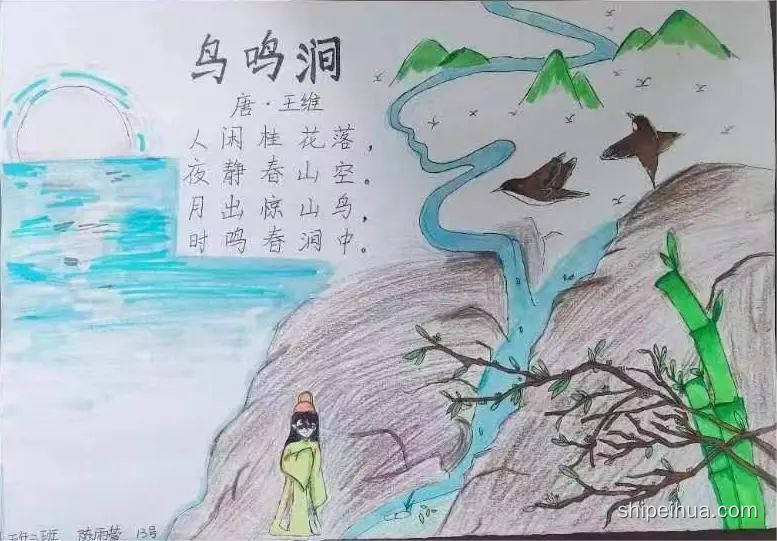 鸟鸣涧
唐·王维
人闲桂花落，
夜静春山空。
月出惊山鸟，
时鸣春涧中。
二班 陈雨 13号
shipeihua.com